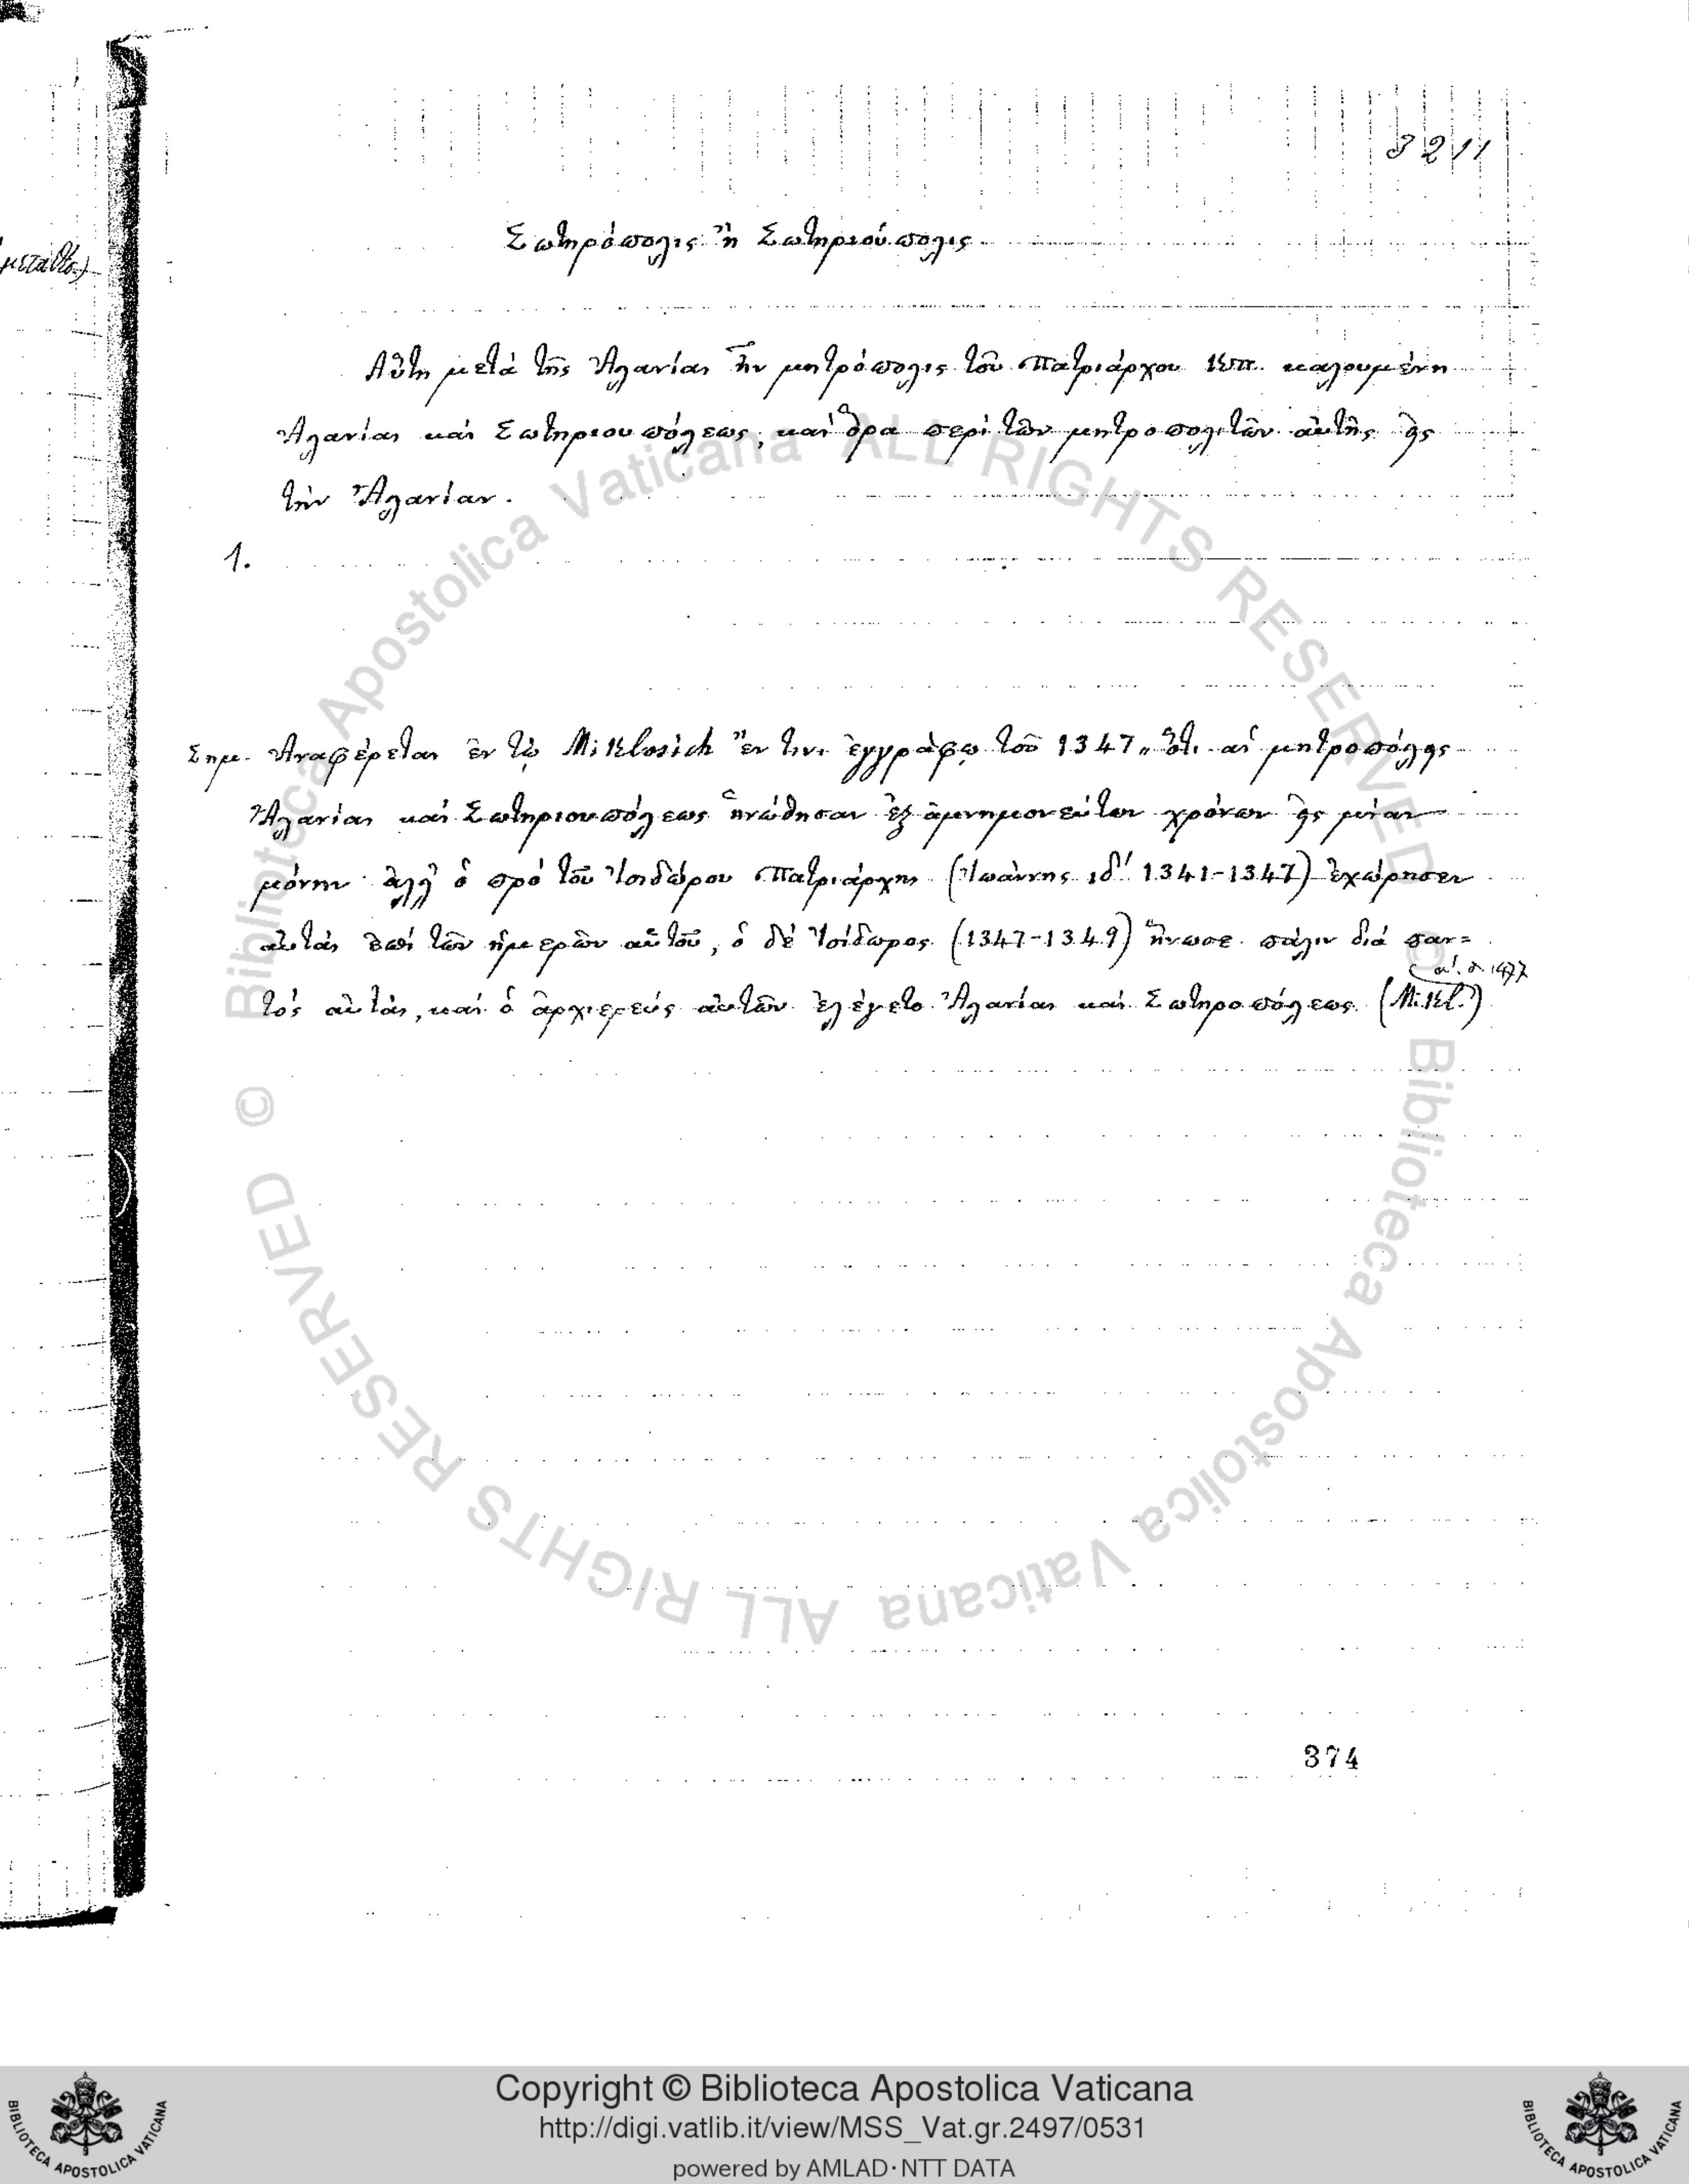 3211
Σωτηρόπολις ἢ Σωτηριούπολις
μεταθ.)
Αὕτη μετὰ τῆς Ἀλανίας ἦν μητρόπολις τοῦ Πατριάρχου Κππ. καλουμένη
Ἀλανίας καὶ Σωτηριουπόλεως, καὶ ὅρα περὶ τῶν μητροπολιτῶν αὐτῆς εἰς
τὴν Ἀλανίαν.
1.
Σημ. Ἀναφέρεται ἐν τῷ Miklosich "ἔν τινι ἐγγράφῳ τοῦ 1347" ὅτι αἱ μητροπόλεις
Ἀλανίας καὶ Σωτηριουπόλεως ἡνώθησαν ἐξ ἀμνημονεύτων χρόνων εἰς μίαν
μόνην· ἀλλ' ὁ πρὸ τοῦ Ἰσιδώρου Πατριάρχης (Ἰωάννης ιδ΄ 1341-1347) ἐχώρησεν
αὐτὰς ἐπὶ τῶν ἡμερῶν αὑτοῦ, ὁ δὲ Ἰσίδωρος (1347-1349) ἥνωσε πάλιν διὰ παν=
τὸς αὐτάς, καὶ ὁ ἀρχιερεὺς αὐτῶν ἐλέγετο Ἀλανίας καὶ Σωτηροπόλεως (Mikl.)
α΄. σ. 477
374
© Biblioteca Apostolica Vaticana ALL RIGHTS RESERVED
© Biblioteca Apostolica Vaticana ALL RIGHTS RESERVED
BIBLIOTECA APOSTOLICA VATICANA
Copyright © Biblioteca Apostolica Vaticana
http://digi.vatlib.it/view/MSS_Vat.gr.2497/0531
powered by AMLAD·NTT DATA
BIBLIOTECA APOSTOLICA VATICANA